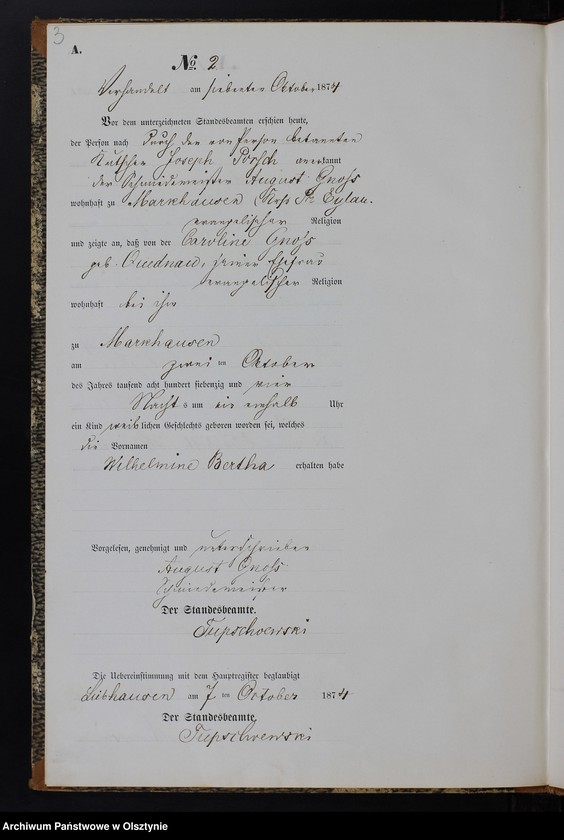 3
A.
No. 2
Verhandelt am siebenten October 1874
Vor dem unterzeichneten Standesbeamten erschien heute,
der Person nach durch den von Person bekannten
Kutscher Joseph Porsch anerkannt
der Schmiedemeister August Gnoss
wohnhaft zu Markhausen Pr Eylau.
evangelischer Religion
und zeigte an, daß von der Caroline Gnoss
geb. Quednau, seiner Ehefrau
evangelischer Religion
wohnhaft bei ihm
zu Markhausen
am zwei ten October
des Jahres tausend acht hundert siebenzig und vier
Nachts um ein einhalb Uhr
ein Kind weiblichen Geschlechts geboren worden sei, welches
die Vornamen
Wilhelmine Bertha erhalten habe
Vorgelesen, genehmigt und unterschrieben
August Gnoss
Schmiedemeister
Der Standesbeamte.
Tupschewski
Die Uebereinstimmung mit dem Hauptregister beglaubigt
am 7 ten October 1874
Der Standesbeamte.
Tupschewski
Archiwum Państwowe w Olsztynie